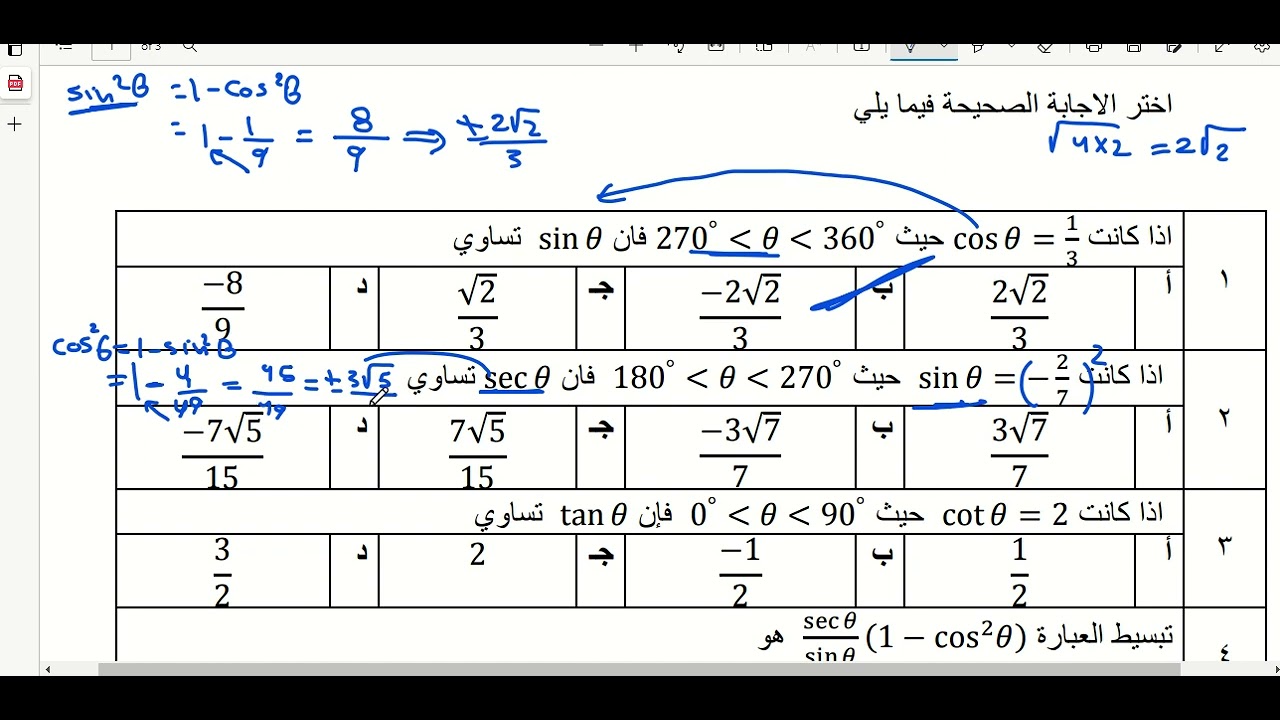 1 of 3
sin²θ = 1 - cos²θ
= 1 - 1/9 = 8/9 ⇒ ±2√2/3
اختر الاجابة الصحيحة فيما يلي
√4×2 = 2√2
١
اذا كانت cos θ = 1/3 حيث 270° < θ < 360° فان sin θ تساوي
أ 2√2/3 ب −2√2/3 جـ √2/3 د −8/9
cos²θ = 1 - sin²θ
= 1 - 4/49 = 45/49 = ±3√5
٢
اذا كانت sin θ = (−2/7)² حيث 180° < θ < 270° فان sec θ تساوي
أ 3√7/7 ب −3√7/7 جـ 7√5/15 د −7√5/15
٣
اذا كانت cot θ = 2 حيث 0° < θ < 90° فإن tan θ تساوي
أ 1/2 ب −1/2 جـ 2 د 3/2
٤
تبسيط العبارة sec θ/sin θ (1 − cos²θ) هو